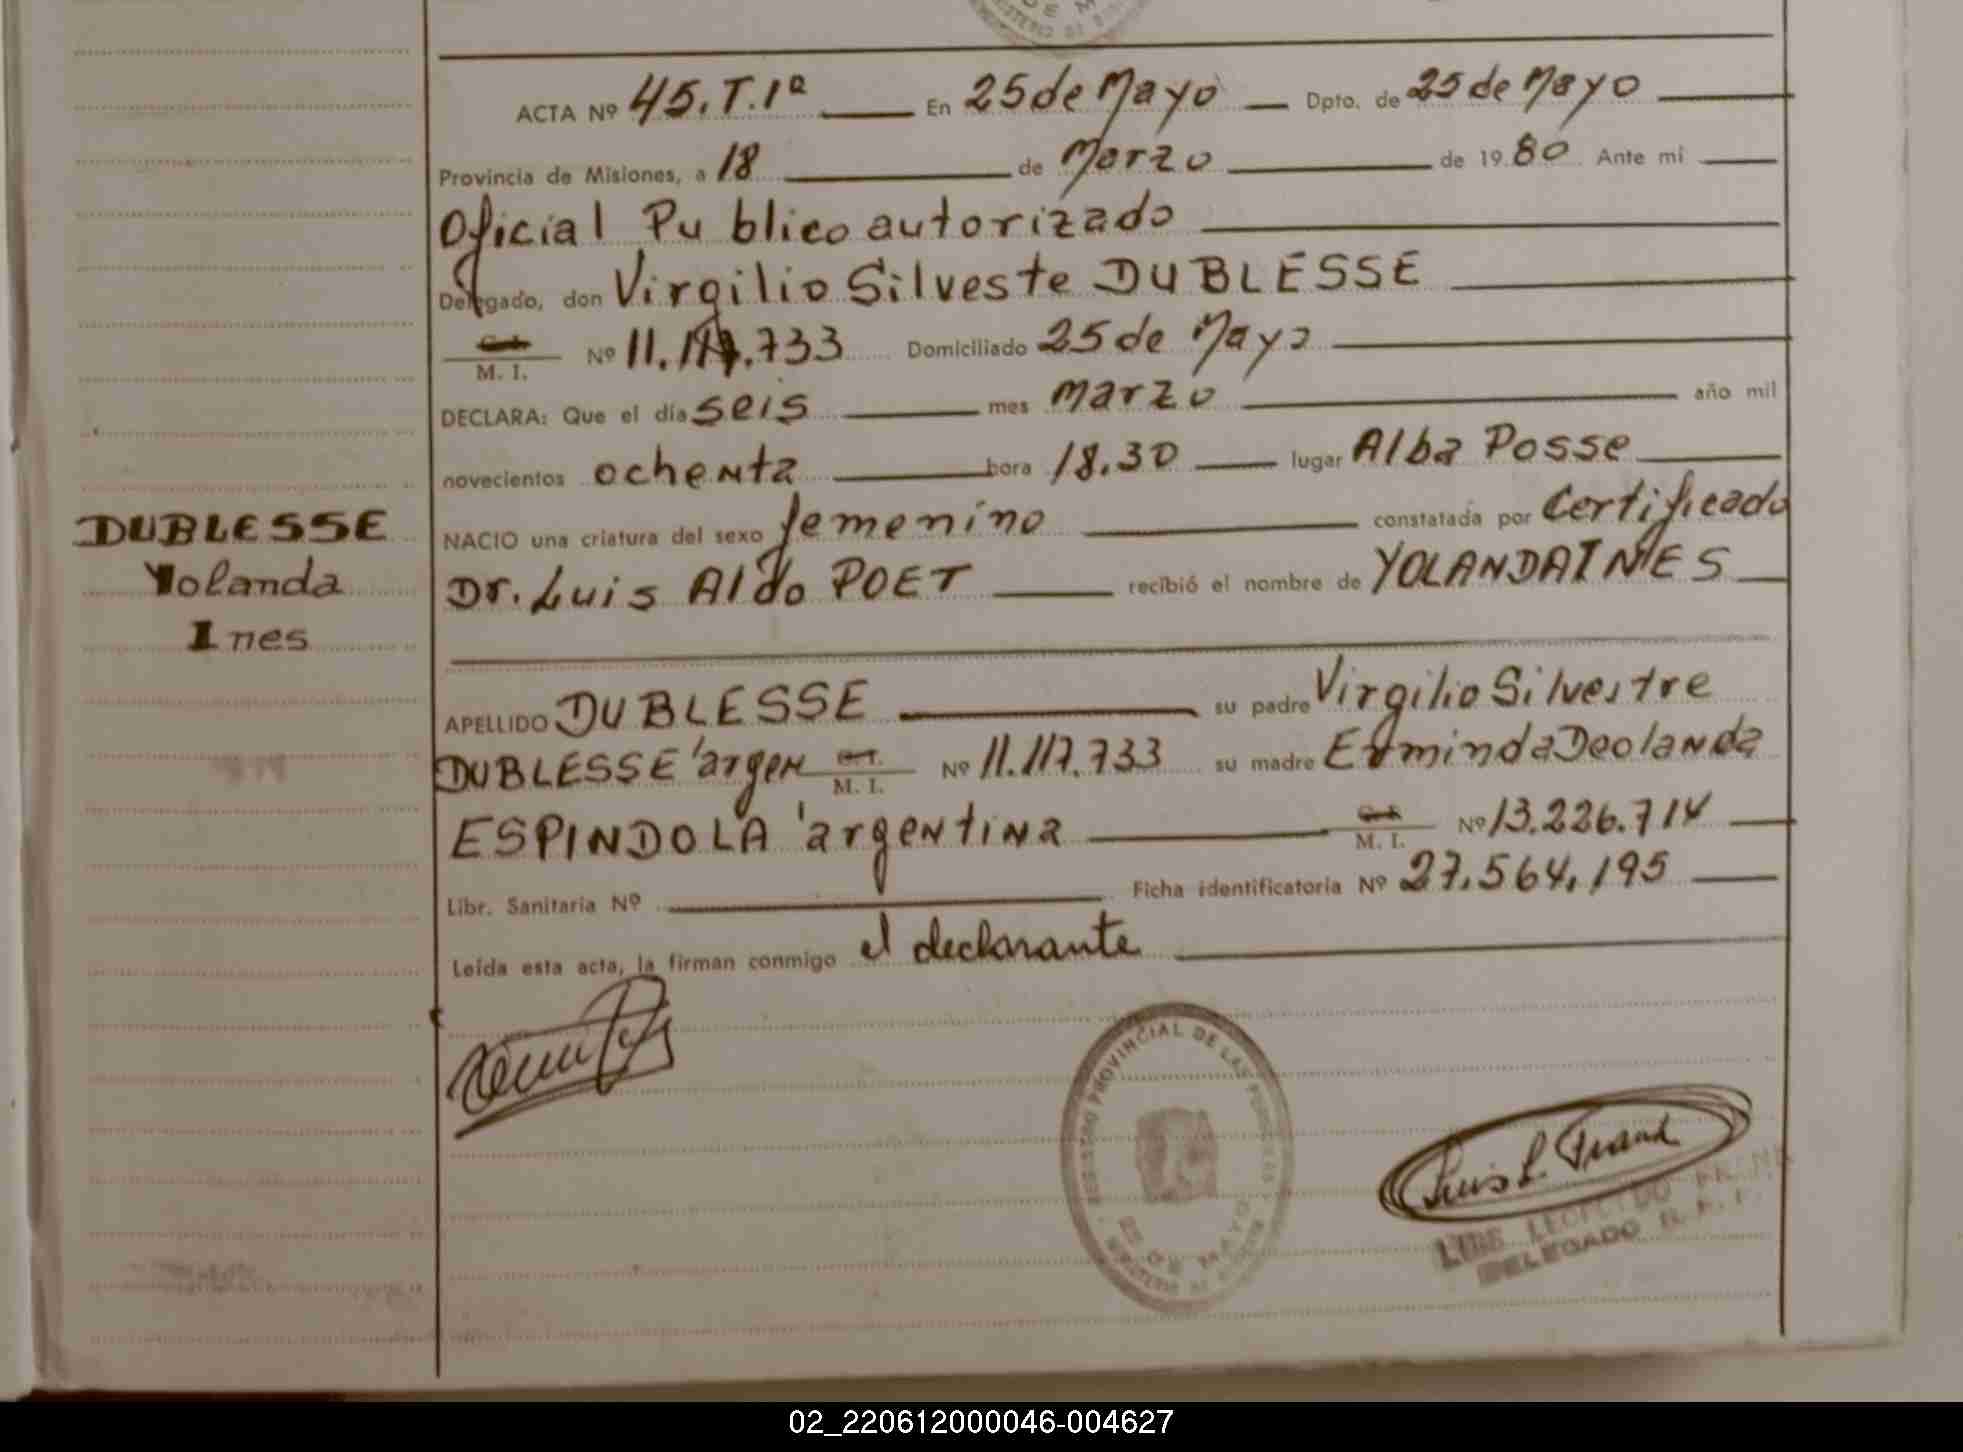 ACTA Nº 45.T.1ª En 25 de Mayo Dpto. de 25 de Mayo
Provincia de Misiones, a 18 de Marzo de 1980 Ante mi
Oficial Publico autorizado
Delegado, don Virgilio Silveste DUBLESSE
M. I. Nº 11.117.733 Domiciliado 25 de Mayo
DECLARA: Que el día seis mes marzo año mil
novecientos ochenta hora 18.30 lugar Alba Posse
NACIO una criatura del sexo femenino constatada por Certificado
Dr. Luis Aldo POET recibió el nombre de YOLANDA INES
DUBLESSE
Yolanda
Ines
APELLIDO DUBLESSE su padre Virgilio Silvestre
DUBLESSE 'argen M. I. Nº 11.117.733 su madre Erminda Deolanda
ESPINDOLA 'argentina M. I. Nº 13.226.714
Libr. Sanitaria Nº Ficha identificatoria Nº 27.564.195
Leída esta acta, la firman conmigo el declarante
REGISTRO PROVINCIAL DE LAS PERSONAS
25 DE MAYO
Luis L. Frank
LUIS LEOPOLDO FRANK
DELEGADO R. P. P.
02_220612000046-004627